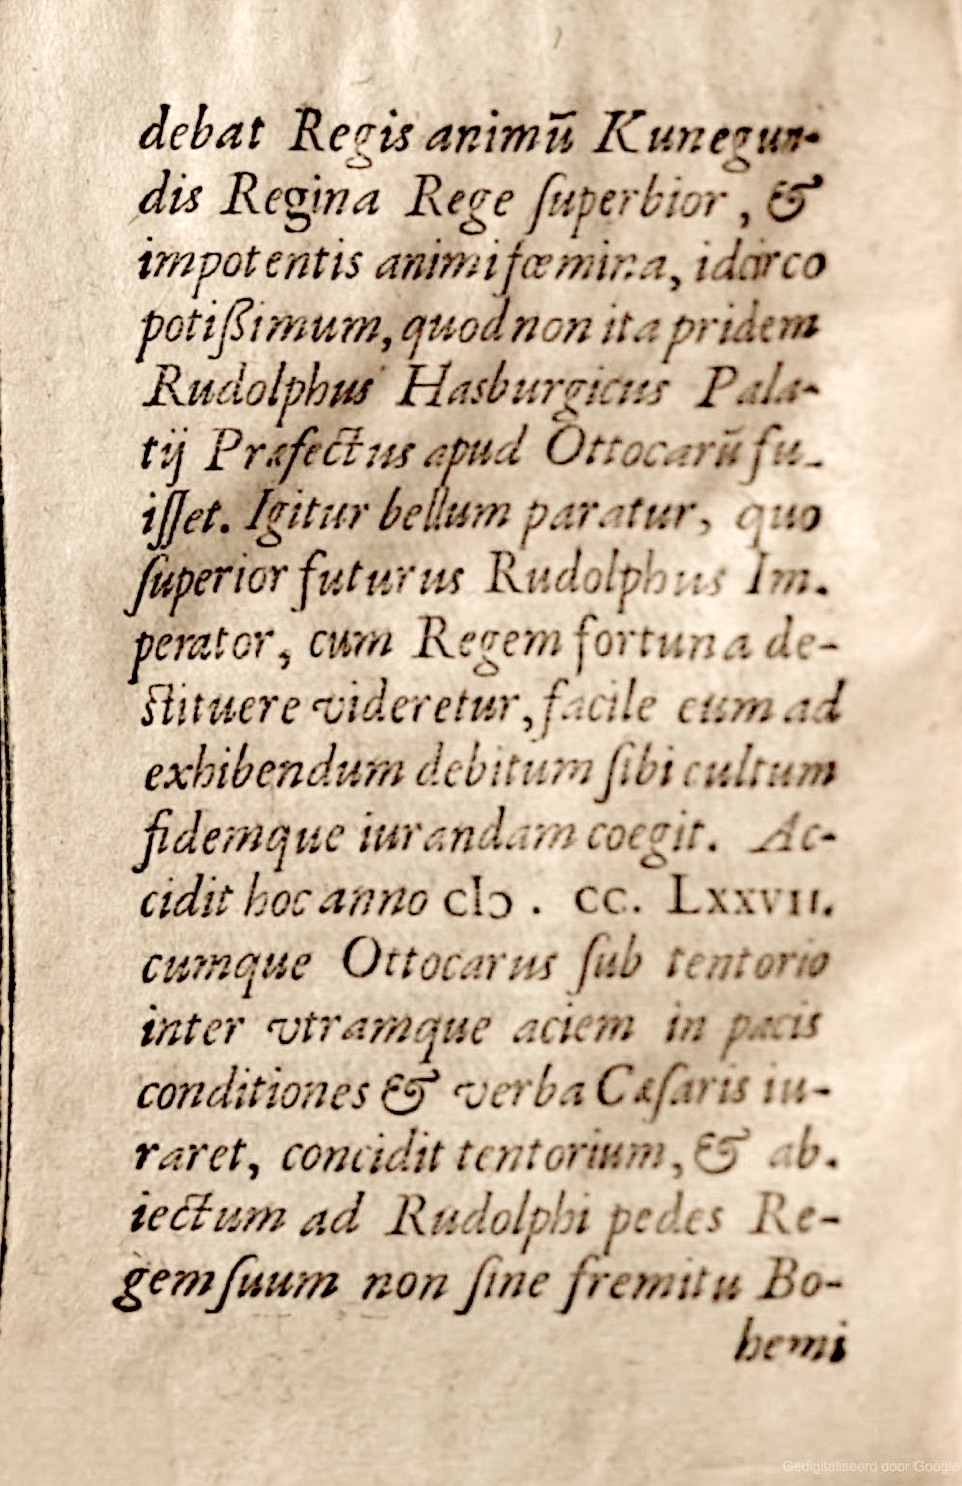 debat Regis animū Kunegun-
dis Regina Rege ſuperbior, &
impotentis animi fœmina, idcirco
potiſſimum, quod non ita pridem
Rudolphus Hasburgicus Pala-
tij Præfectus apud Ottocarū fu-
iſſet. Igitur bellum paratur, quo
ſuperior futurus Rudolphus Im-
perator, cum Regem fortuna de-
ſtituere videretur, facile eum ad
exhibendum debitum ſibi cultum
fidemque iurandam coegit. Ac-
cidit hoc anno cIↄ. cc. Lxxvii.
cumque Ottocarus ſub tentorio
inter vtramque aciem in pacis
conditiones & verba Cæſaris iu-
raret, concidit tentorium, & ab-
iectum ad Rudolphi pedes Re-
gem ſuum non ſine fremitu Bo-
hemi
Gedigitaliseerd door Google